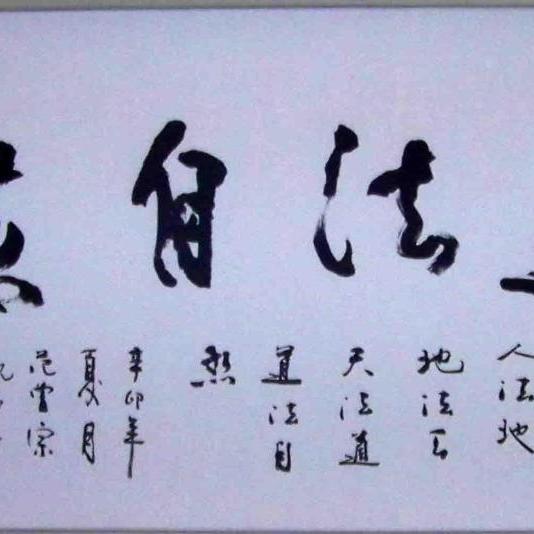 法自
人法地
地法天
天法道
道法自
然
辛卯年
夏月
范曾宗